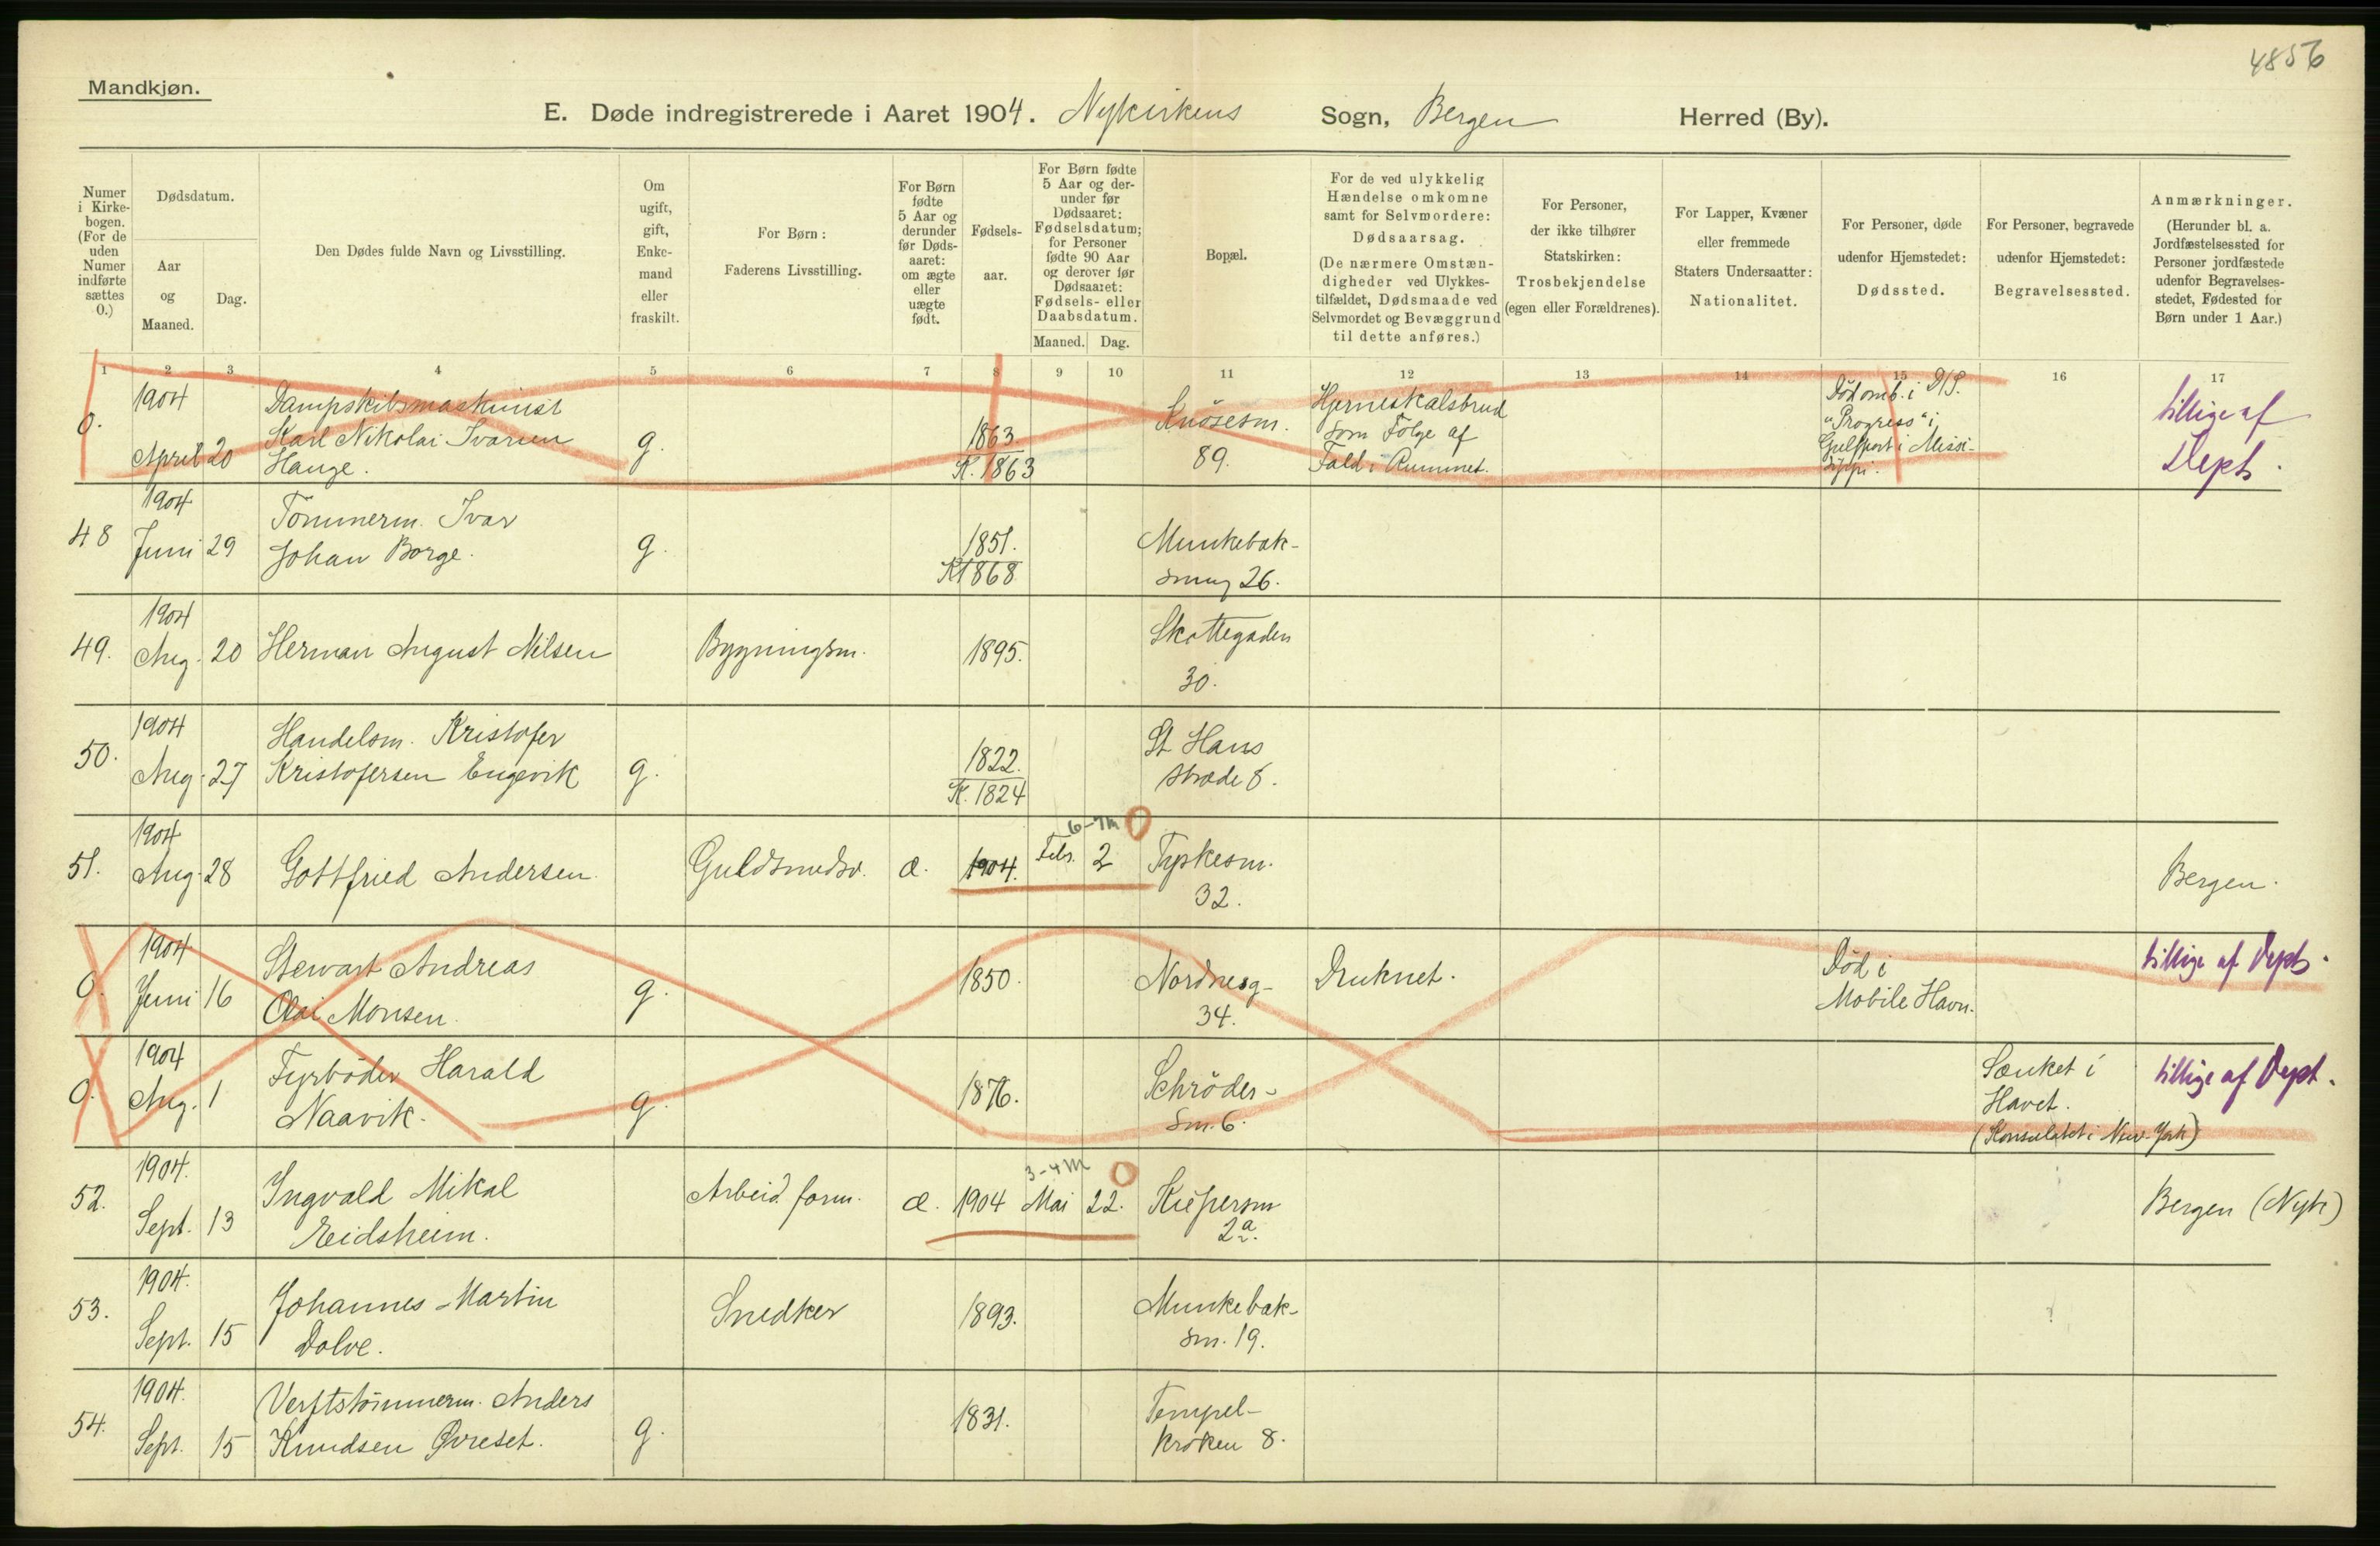 4856
Mandkjøn.
E. Døde indregistrerede i Aaret 1904. Nykirkens Sogn, Bergen Herred (By).
Numer i Kirkebogen. (For de uden Numer indførte sættes 0.)
Dødsdatum.
Aar og Maaned.
Dag.
Den Dødes fulde Navn og Livsstilling.
Om ugift, gift, Enkemand eller fraskilt.
For Børn: Faderens Livsstilling.
For Børn fødte 5 Aar og derunder før Dødsaaret: om ægte eller uægte født.
Fødselsaar.
For Børn fødte 5 Aar og derunder før Dødsaaret: Fødselsdatum; for Personer fødte 90 Aar og derover før Dødsaaret: Fødsels- eller Daabsdatum.
Maaned. Dag.
Bopæl.
For de ved ulykkelig Hændelse omkomne samt for Selvmordere: Dødsaarsag. (De nærmere Omstændigheder ved Ulykkestilfældet, Dødsmaade ved Selvmordet og Bevæggrund til dette anføres.)
For Personer, der ikke tilhører Statskirken: Trosbekjendelse (egen eller Forældrenes).
For Lapper, Kvæner eller fremmede Staters Undersaatter: Nationalitet.
For Personer, døde udenfor Hjemstedet: Dødssted.
For Personer, begravede udenfor Hjemstedet: Begravelsessted.
Anmærkninger. (Herunder bl. a. Jordfæstelsessted for Personer jordfæstede udenfor Begravelsesstedet, Fødested for Børn under 1 Aar.)
1 2 3 4 5 6 7 8 9 10 11 12 13 14 15 16 17
0. 1904 April 20 Dampskibsmaskinist Karl Nikolai Ivarsen Hauge. g. 1863 K. 1863 Knøsesm. 89. Hjerneskalsbrud som Følge af Fald i Rummet. Død omb. i D/S. "Progress" i Gulfport i Missisippi. tillige af Dept.
48 1904 Juni 29 Tømmerm. Ivar Johan Borge. g. 1851. K 1868 Munkebæksmug 26.
49. 1904 Aug. 20 Herman August Nilsen Bygningsm. 1895. Skottegaden 30.
50. 1904 Aug. 27 Handelsm. Kristofer Kristofersen Engevik g. 1822. K. 1824 St Hans stræde 8.
51. 1904 Aug. 28 Gottfried Andersen. Guldsmedsv. æ. 1904. Febr. 2 6-7m Tyskesm. 32. Bergen.
0. 1904 Juni 16 Stewart Andreas Olai Monsen. g. 1850. Nordnesg- 34. Druknet. Død i Mobile Havn. tillige af Dept.
0. 1904 Aug. 1 Fyrbøder Harald Naavik. g. 1876. Schrøder- sm. 6. Sænket i Havet. (Konsulatet i New-York) tillige af Dept.
52. 1904. Sept. 13 Ingvald Mikal Eidsheim. Arbeid.form. æ. 1904 Mai 22. 3-4m Kippersm 2a. Bergen (Nyk)
53. 1904. Sept. 15 Johannes Martin Dolve. Snedker 1893. Munkebæk- sm. 19.
54. 1904. Sept. 15 Verftstømmerm. Anders Knudsen Øvreset. g. 1831. Tempel- krøken 8.